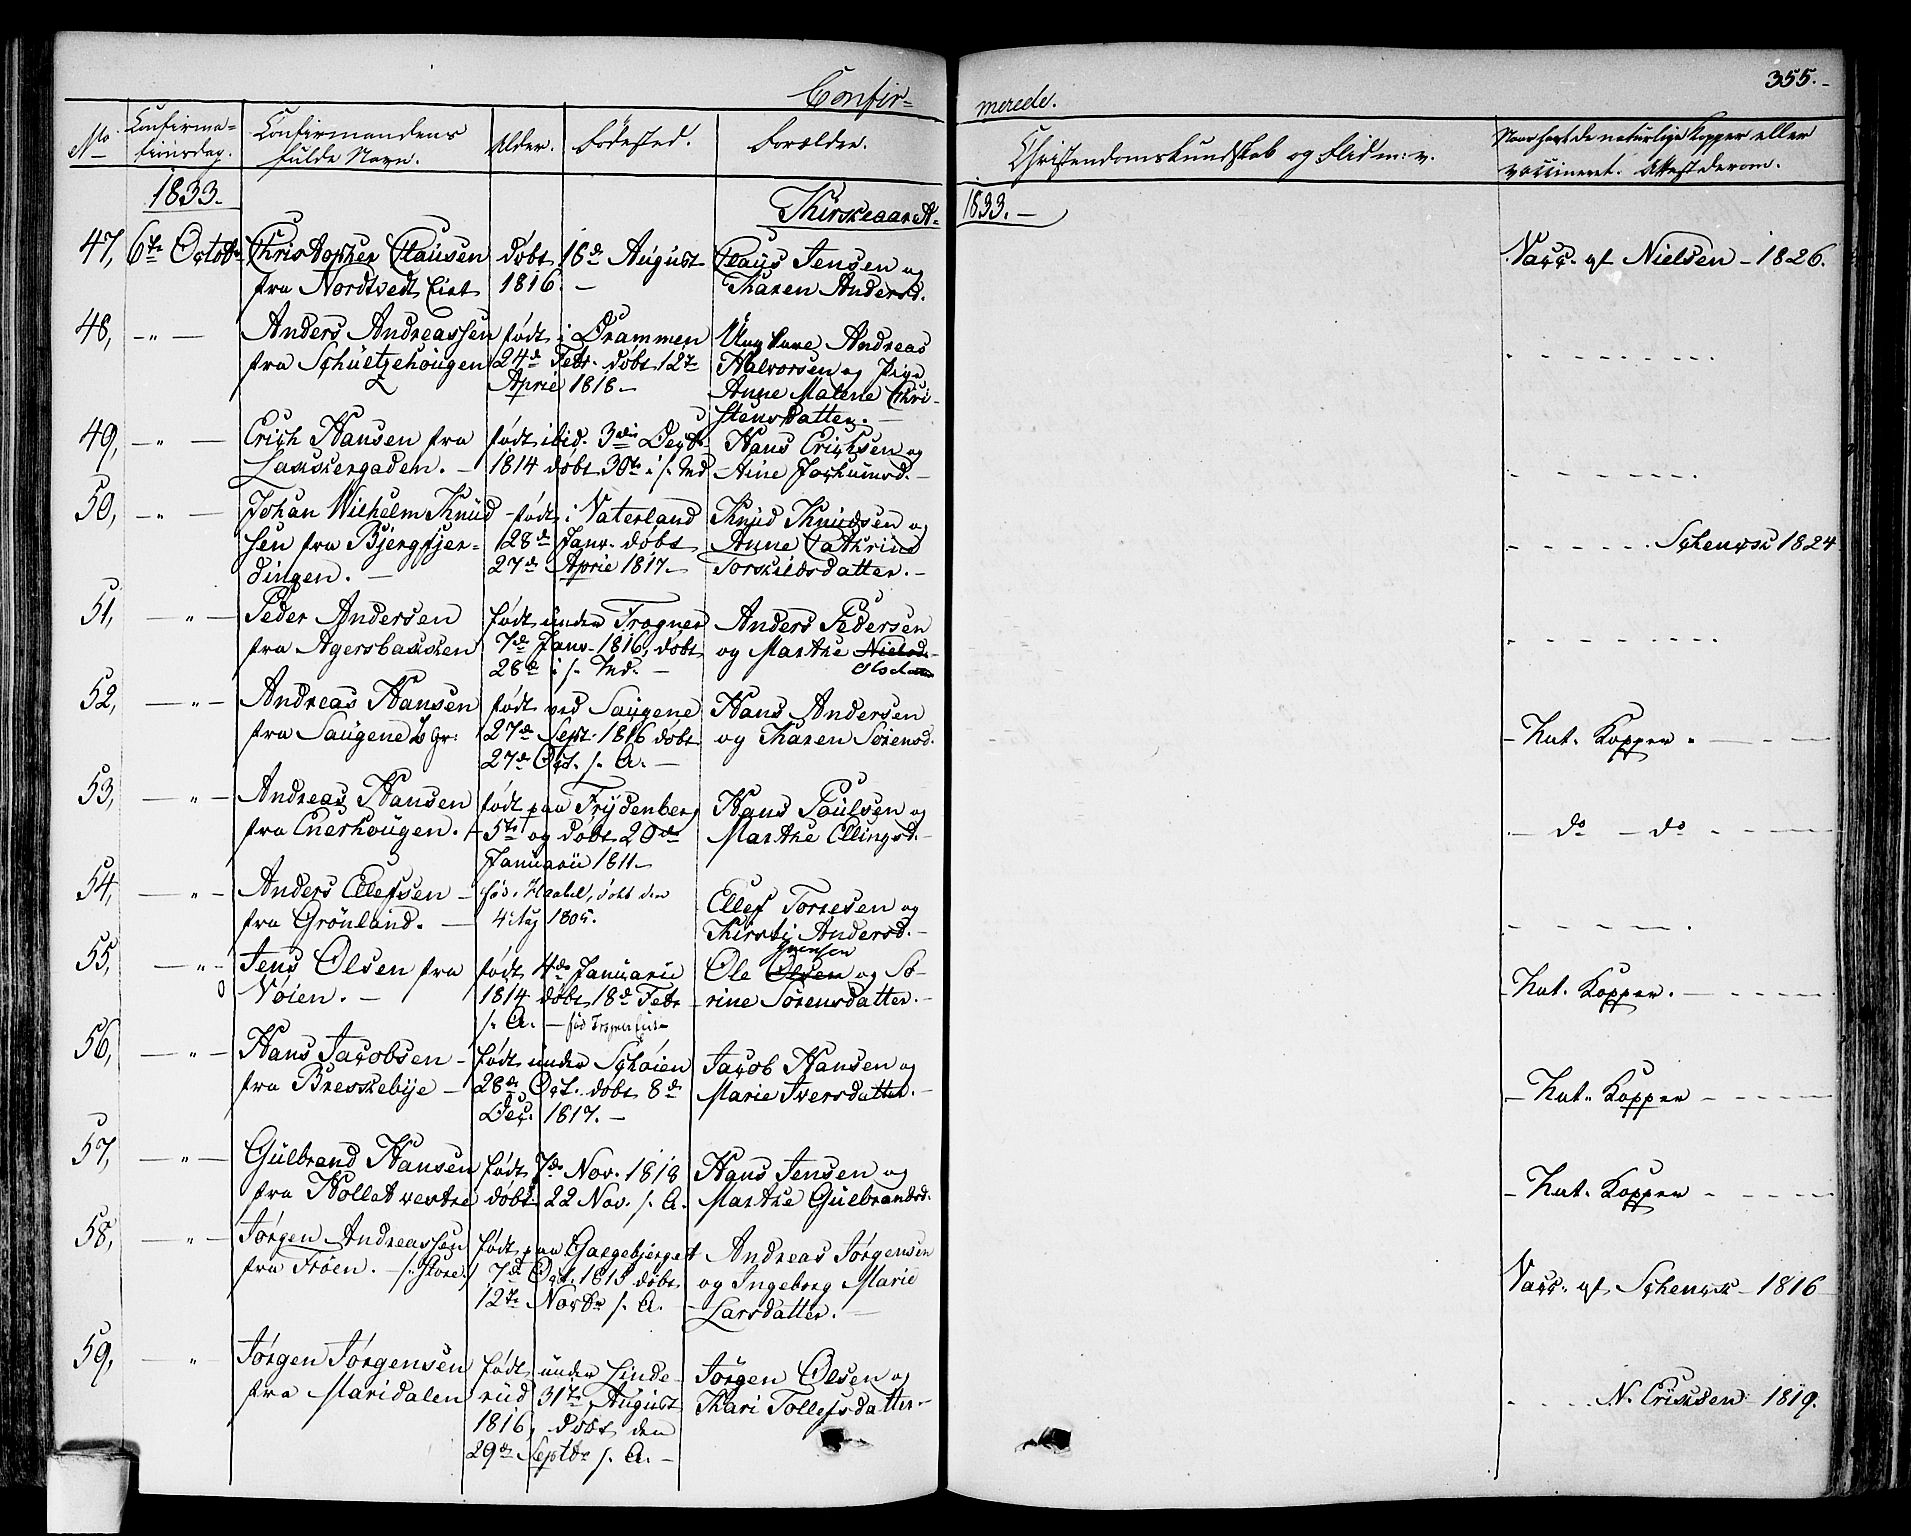 Confir-
merede.
355.
No
Confirma-
tionsdag.
Confirmandens
fulde Navn.
Alder.
Fødested.
Forældre.
Christendomskundskab og Flid m: v.
Naar havt de naturlige Kopper eller
vaccineret. Attest derom.
1833.
Kirkeaaret
1833. -
47, 6te Octob. Christopher Clausen døbt 16de August Claus Jensen og
fra Nordtvedt Eiet 1816. - Karen Andersd.
Vacc. af Nielsen - 1826.
48, - " - Anders Andreassen født i Drammen Ungkare Andreas
fra Schültzehougen 24de Febr. døbt 12te Halvorsen og Pige
April 1818 - Anne Malene Chri-
stensdatter. -
49, - " - Erich Hansen fra født ibid. 3die Dectr. Hans Erichsen og
Lakkergaden. - 1814 døbt 30te i s. Md Aine Jochumsd. -
50, - " - Johan Wilhelm Knud født i Vaterland Knud Knudsen og
sen fra Bjergfjer- 28de Janv. døbt Anne Cathrine
dingen. - 27de April 1817. - Torskildsdatter. -
Schenck 1824
51, - " - Peder Andersen født under Frogner Anders Pedersen
fra Agersbakken 7de Janv. 1816, døbt og Marthe Nielsd.
28de i s. Md. - Olsdatter
52, - " - Andreas Hansen født ved Saugene Hans Andersen
fra Saugene b Gr: 27de Sept. 1816 døbt og Karen Sørensd.
27de Oct. s. A. -
- Nat. Kopper
53, - " - Andreas Hansen født paa Frydenberg Hans Poulsen og
fra Enerhougen. 5te og døbt 20de Marthe Ellingsd. -
Januarii 1811 -
- do - do
54, - " - Anders Ellefsen - født i , døbt den
fra Grønland. - 4 Aug 1805. Ellef Toresen og
Kirsti Andersd. -
55, - " - Jens Olsen fra født 4de Januarii Ole Olsen og Sø-
Jensen
Vøien. - 1814 døbt 18de Febr rine Sørensdatter. -
s. A. - fød Frogner Eie
- Nat. Kopper. -
56, - " - Hans Jacobsen - født under Schøien Jacob Hansen og
fra Breskebye - 28de Oct. døbt 8de Marie Iversdatter. -
Dec. 1817. -
- Nat. Kopper -
57, - " - Gulbrand Hansen født 7de Nov. 1818 Hans Jensen og
fra Kollet vestre døbt 22 Nov. s. A. Marthe Gulbrandsd.
- Nat. Kopper -
58, - " - Jørgen Andreassen født paa Galgebjerget Andreas Jørgensen
fra Frøen. - (Store) 7de Oct. 1815 døbt og Ingeborg Marie
12te Novbr s. A. Larsdatter. -
Vacc. af Schenck - 1816
59, - " Jørgen Jørgensen født under Linde- Jørgen Olsen og
fra Maridalen rud 31te August Kari Tollefsdatter -
1816, døbt den
29de Septbr s. A. -
N. Erichsen 1819.